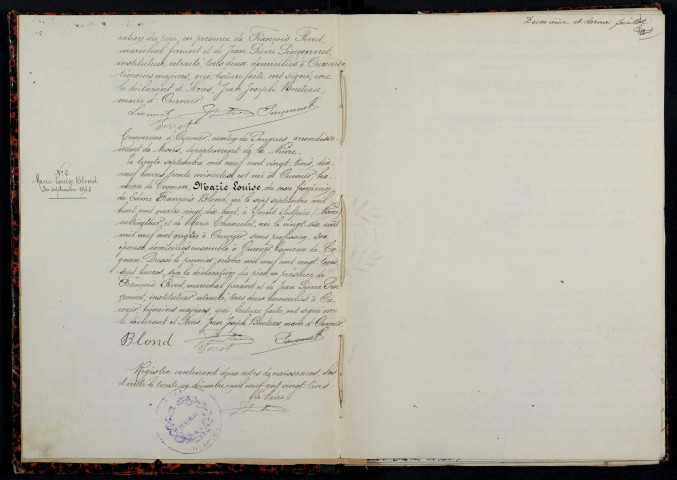 ration du père, en présence de François Huet,
maréchal ferrant et de Jean Pierre
instituteur retraité, tous deux domiciliés à Ourouër
témoins majeurs, qui, lecture faite, ont signé avec
le déclarant et Nous Jean Joseph
maire d'Ourouër
Commune d'Ourouër, canton de Pougues, arrondisse-
ment de Nevers, département de la Nièvre.
Le trente septembre mil neuf cent vingt trois, dix
neuf heures trente minutes est née à Ourouër ha-
meau de Cognan, Marie Louise, du sexe féminin
de François Blond, né le sept septembre mil
huit cent quatre vingt dix huit, à Saint Sulpice (Nièvre)
cultivateur, et de Marie née le vingt six août
mil neuf cent à Ourouër, sans profession, son
épouse, domiciliés ensemble à Ourouër hameau de Co-
gnan. Dressé le premier octobre mil neuf cent vingt trois
sept heures, sur la déclaration du père, en présence de
François maréchal ferrant et de Jean Pierre
instituteur retraité, tous deux domiciliés à Ou-
rouër, témoins majeurs, qui, lecture faite, ont signé avec
le déclarant et Nous Jean Joseph maire d'Ourouër
Blond
Registre contenant deux actes de naissances, clos
et arrêté le trente un décembre mil neuf cent vingt trois
Le Maire
N° 2
Marie Louise Blond
30 septembre 1923
MAIRIE
Deuxième et dernier feuillet